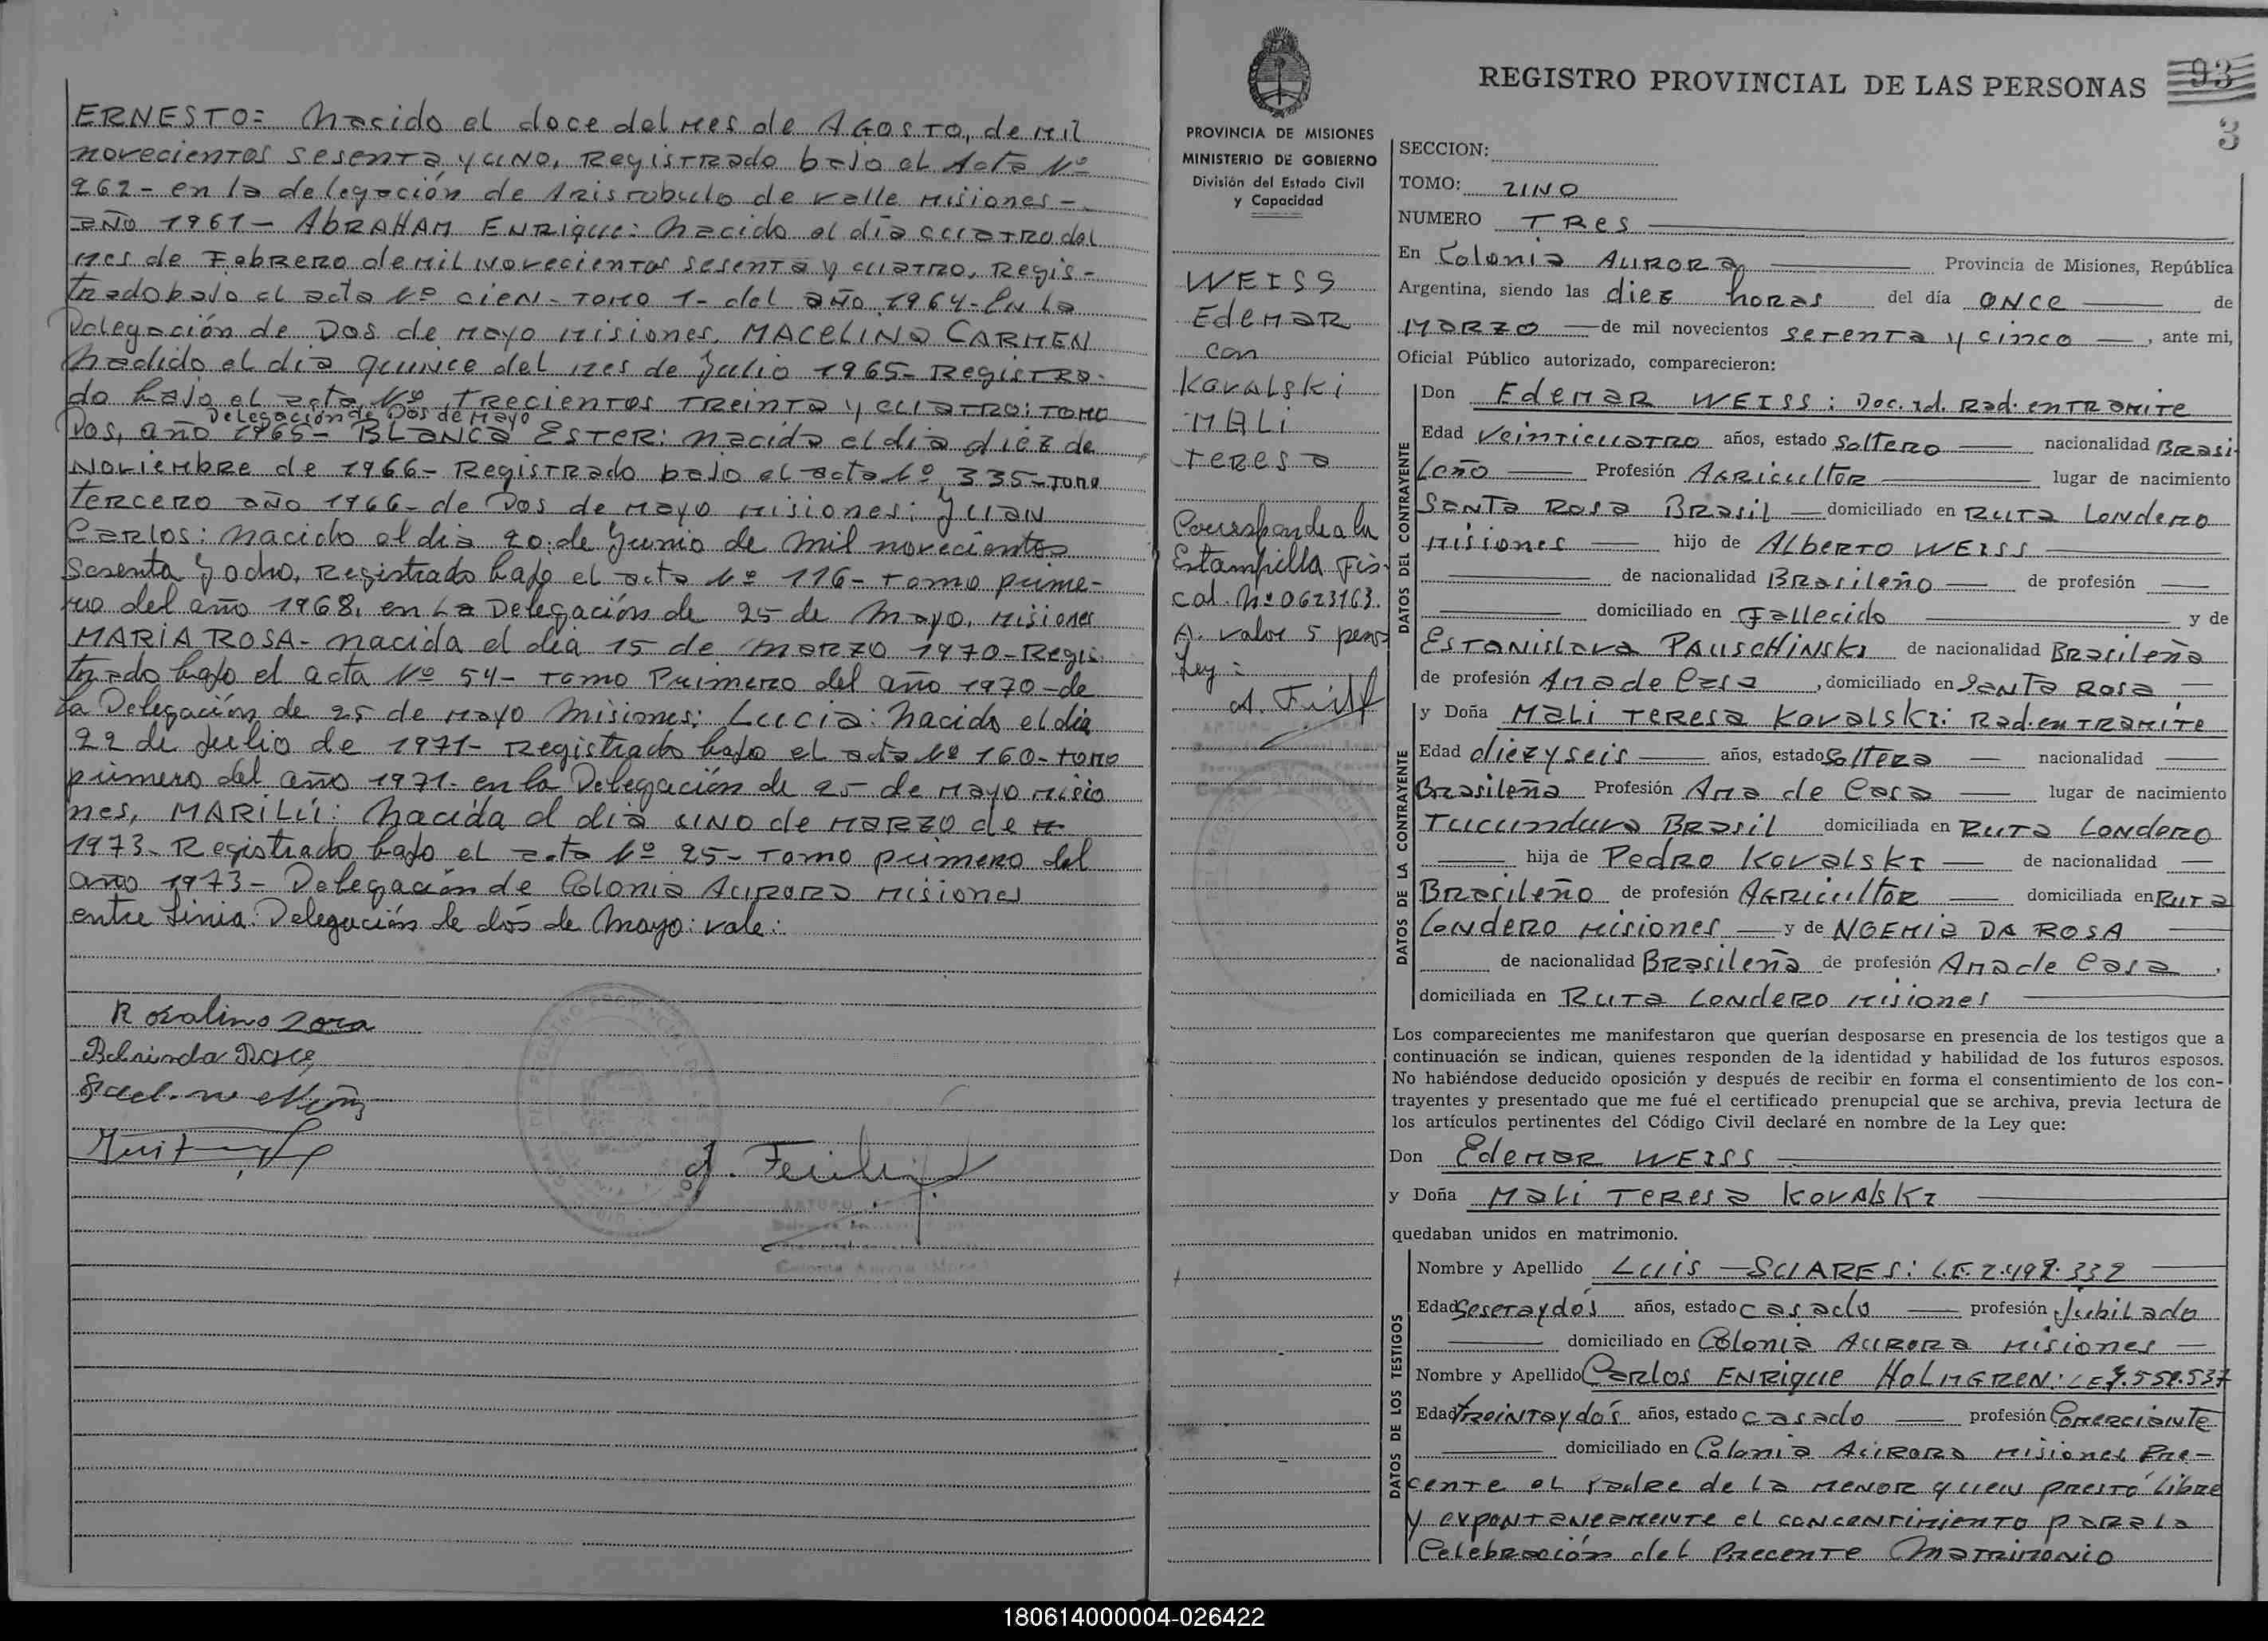 ERNESTO: Nacido el doce del mes de AGOSTO, de mil
novecientos sesenta y uno, Registrado bajo el Acta Nº
262- en la delegación de Aristobulo de valle Misiones-
año 1961- ABRAHAM ENRique: Nacido el día cuatro del
mes de Febrero de mil novecientos sesenta y cuatro, Regis-
trado bajo el acta Nº cien- Tomo 1- del año 1964- En la
Delegación de Dos de Mayo Misiones, MACELINO CARMEN
Nacido el día quince del mes de Julio 1965- Registra-
do bajo el acta Nº Trecientos Treinta y cuatro: Tomo
Delegación de Dos de Mayo
Dos, año 1965- BLANCA ESTER: Nacida el día diez de
Noviembre de 1966- Registrado bajo el acta Nº 335- Tomo
Tercero año 1966- de Dos de Mayo Misiones: Juan
Carlos: Nacido el día 20 de Junio de mil novecientos
Sesenta y ocho, Registrado bajo el acta Nº 116- Tomo prime-
ro del año 1968, en la Delegación de 25 de Mayo, Misiones
MARIA ROSA- nacida el día 15 de Marzo 1970- Regis
trado bajo el acta Nº 54- Tomo Primero del año 1970- de
la Delegación de 25 de Mayo Misiones: Lucia: Nacida el día
22 de Julio de 1971- Registrado bajo el acta Nº 160- Tomo
primero del año 1971- en la Delegación de 25 de Mayo Misio
nes, MARILÚ: Nacida el día uno de Marzo de
1973- Registrado bajo el acta Nº 25- Tomo primero del
año 1973- Delegación de Colonia Aurora Misiones
entre linia: Delegación de dos de Mayo: vale:
Rosalino
A.
REGISTRO PROVINCIAL DE LAS PERSONAS 93
3
PROVINCIA DE MISIONES
MINISTERIO DE GOBIERNO
División del Estado Civil
y Capacidad
WEISS
Edemar
con
Kovalski
MALi
Teresa
Corresponde a la
Estampilla Fis-
cal. Nº 0623163.
A. valor 5 pesos
Ley:
SECCION:
TOMO: UNO
NUMERO TRes
En Colonia Aurora Provincia de Misiones, República
Argentina, siendo las diez horas del día ONCE de
Marzo de mil novecientos setenta y cinco, ante mi,
Oficial Público autorizado, comparecieron:
DATOS DEL CONTRAYENTE
Don Edemar WEISS: Doc. id. Rad. en Tramite
Edad Veinticuatro años, estado Soltero nacionalidad Brasi
leño Profesión Agricultor lugar de nacimiento
Santa Rosa Brasil domiciliado en Ruta Londero
Misiones hijo de Alberto WEISS
de nacionalidad Brasileño de profesión
domiciliado en Fallecido y de
Estanislava PAUSCHINSKI de nacionalidad Brasileña
de profesión Ama de Casa, domiciliado en Santa Rosa
DATOS DE LA CONTRAYENTE
y Doña Mali Teresa Kovalski: Rad. en Tramite
Edad diez y seis años, estado Soltera nacionalidad
Brasileña Profesión Ama de Casa lugar de nacimiento
Tucunduva Brasil domiciliada en Ruta Londero
hija de Pedro Kovalski de nacionalidad
Brasileño de profesión Agricultor domiciliada en Ruta
Londero Misiones y de NOEMIA DA ROSA
de nacionalidad Brasileña de profesión Ama de Casa,
domiciliada en Ruta Londero Misiones
Los comparecientes me manifestaron que querían desposarse en presencia de los testigos que a
continuación se indican, quienes responden de la identidad y habilidad de los futuros esposos.
No habiéndose deducido oposición y después de recibir en forma el consentimiento de los con-
trayentes y presentado que me fué el certificado prenupcial que se archiva, previa lectura de
los artículos pertinentes del Código Civil declaré en nombre de la Ley que:
Don Edemar WEISS
y Doña Mali Teresa Kovalski
quedaban unidos en matrimonio.
DATOS DE LOS TESTIGOS
Nombre y Apellido Luis SUARES: L.E. 2.492.332
Edad Seseta y dós años, estado casado profesión Jubilado
domiciliado en Colonia Aurora Misiones
Nombre y Apellido Carlos ENRique HOLMGREN: L.E. 7.559.537
Edad treinta y dós años, estado casado profesión Comerciante
domiciliado en Colonia Aurora Misiones Pre-
cente el Padre de la menor quien prestó libre
y expontaneamente el concentimiento para la
Celebración del Precente Matrimonio
180614000004-026422